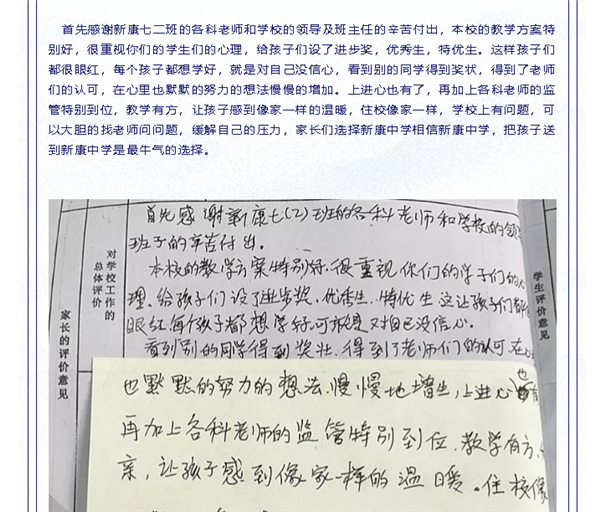 首先感谢新康七二班的各科老师和学校的领导及班主任的辛苦付出，本校的教学方案特
别好，很重视你们的学生们的心理，给孩子们设了进步奖，优秀生，特优生。这样孩子们
都很眼红，每个孩子都想学好，就是对自己没信心，看到别的同学得到奖状，得到了老师
们的认可，在心里也默默的努力的想法慢慢的增加。上进心也有了，再加上各科老师的监
管特别到位，教学有方，让孩子感到像家一样的温暖，住校像家一样，学校上有问题，可
以大胆的找老师问问题，缓解自己的压力，家长们选择新康中学相信新康中学，把孩子送
到新康中学是最牛气的选择。
对学校工作的
总体评价
家长的评价意见
学生评价意见
首先感谢新康七(2)班的各科老师和学校的领
班子的辛苦付出。
本校的教学方案特别好.很重视你们的学子们的心
理.给孩子们设了进步奖.优秀生.特优生这让孩子们都
眼红每个孩子都想学好.可就是对自己没信心.
看到别的同学得到奖状.得到了老师们的认可.在心
也默默的努力的想法.慢慢地增生,上进心也有
再加上各科老师的监管特别到位.教学有方,
亲,让孩子感到像家一样的温暖.住校像